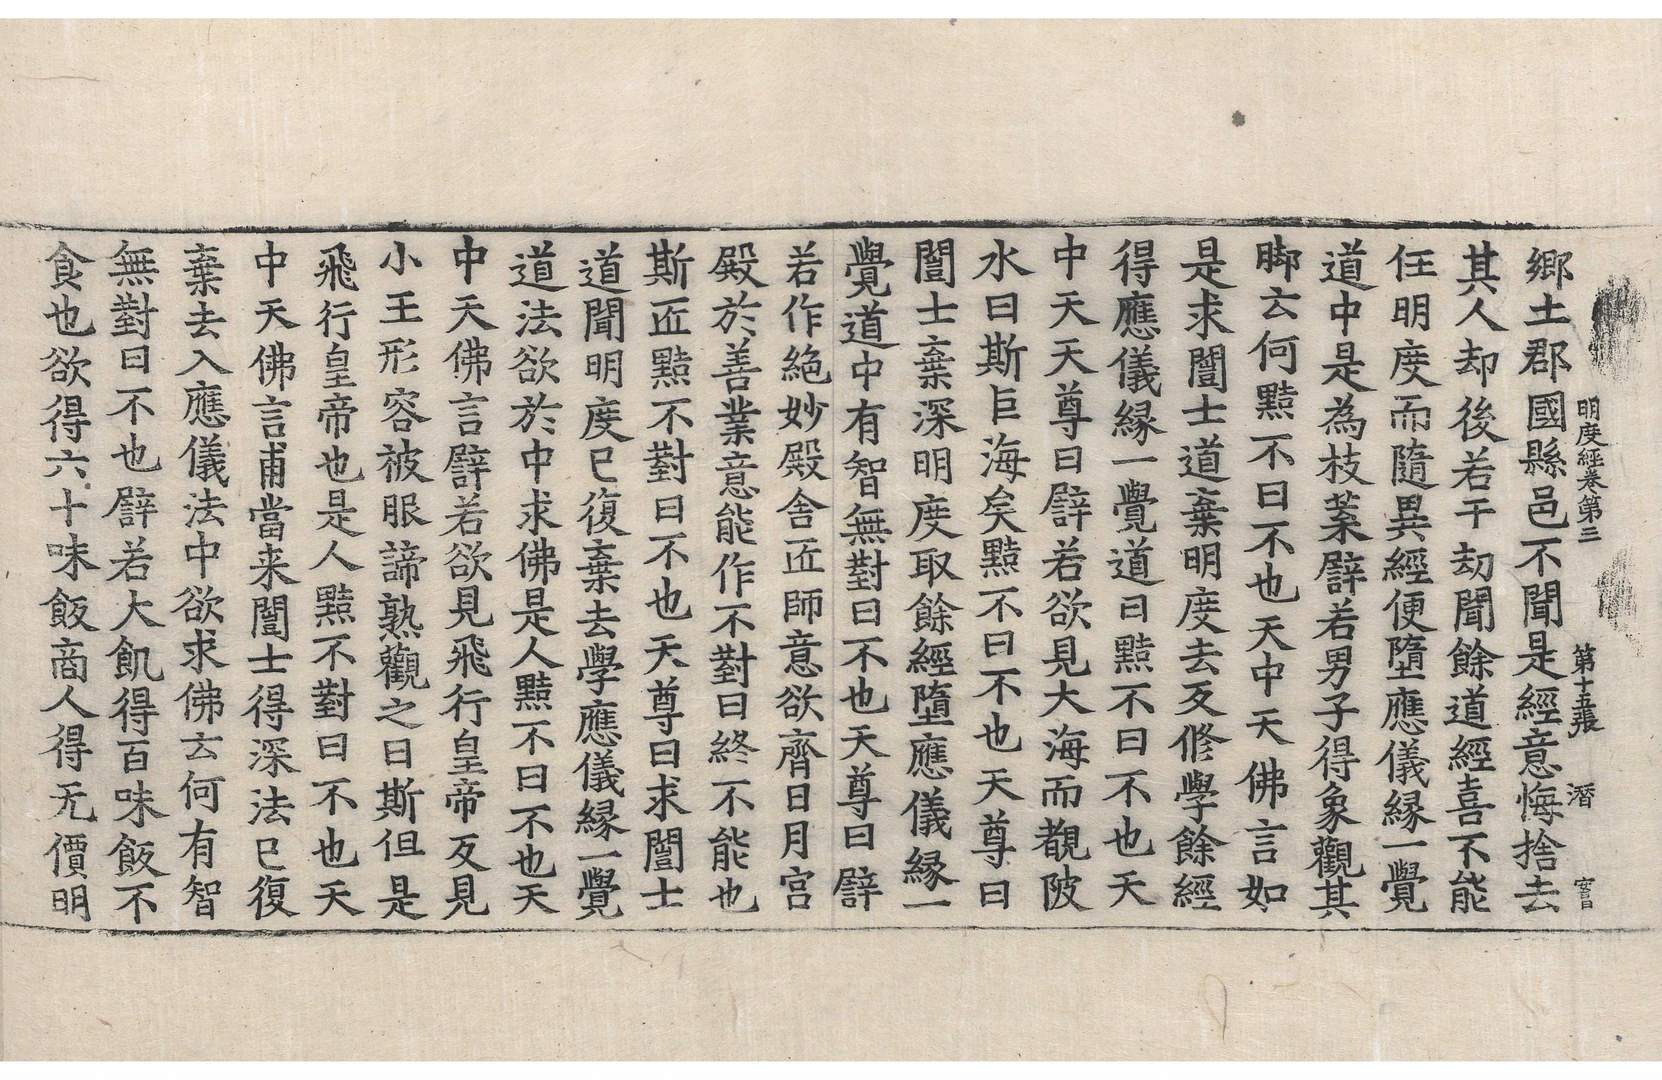 明度經卷第三 第十五張 潛 實
鄉土郡國縣邑不聞是經意悔捨去
其人却後若干劫聞餘道經喜不能
任明度而隨異經便墮應儀緣一覺
道中是為枝葉譬若男子得象觀其
脚云何黠不曰不也天中天佛言如
是求闓士道棄明度去反修學餘經
得應儀緣一覺道曰黠不曰不也天
中天天尊曰譬若欲見大海而覩陂
水曰斯巨海矣黠不曰不也天尊曰
闓士棄深明度取餘經墮應儀緣一
覺道中有智無對曰不也天尊曰譬
若作絕妙殿舍匠師意欲齊日月宮
殿於善業意能作不對曰終不能也
斯匠黠不對曰不也天尊曰求闓士
道聞明度已復棄去學應儀緣一覺
道法欲於中求佛是人黠不曰不也天
中天佛言譬若欲見飛行皇帝反見
小王形容被服諦熟觀之曰斯但是
飛行皇帝也是人黠不對曰不也天
中天佛言甫當来闓士得深法已復
棄去入應儀法中欲求佛云何有智
無對曰不也譬若大飢得百味飯不
食也欲得六十味飯商人得无價明